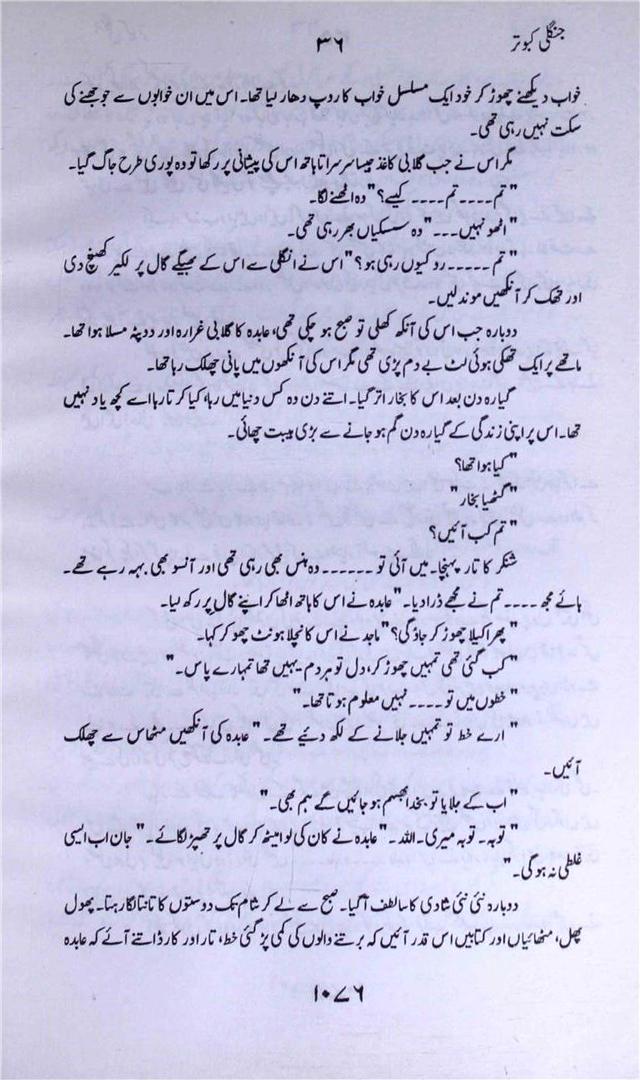 جنگلی کبوتر
۳۶
خواب دیکھنے چھوڑ کر خود ایک مسلسل خواب کا روپ دھار لیا تھا۔ اس میں ان خوابوں سے جوجھنے کی
سکت نہیں رہی تھی۔
مگر اس نے جب گلابی کاغذ جیسا سرسراتا ہاتھ اس کی پیشانی پر رکھا تو وہ پوری طرح جاگ گیا۔
"تم۔۔۔۔ تم۔۔۔۔ کیسے؟" وہ اٹھنے لگا۔
"اٹھو نہیں۔۔۔" وہ سسکیاں بھر رہی تھی۔
"تم۔۔۔۔۔ رو کیوں رہی ہو؟" اس نے انگلی سے اس کے بھیگے گال پر لکیر کھینچ دی
اور تھک کر آنکھیں موند لیں۔
دوبارہ جب اس کی آنکھ کھلی تو صبح ہو چکی تھی، عابدہ کا گلابی غرارہ اور دوپٹہ مسلا ہوا تھا۔
ماتھے پر ایک تھکی ہوئی لٹ بے دم پڑی تھی مگر اس کی آنکھوں میں پانی چھلک رہا تھا۔
گیارہ دن بعد اس کا بخار اتر گیا۔ اتنے دن وہ کس دنیا میں رہا، کیا کرتا رہا اسے کچھ یاد نہیں
تھا۔ اس پر اپنی زندگی کے گیارہ دن گم ہو جانے سے بڑی ہیبت چھائی۔
"کیا ہوا تھا؟
"گٹھیا بخار"
"تم کب آئیں؟
شنکر کا تار پہنچا۔ میں آئی تو۔۔۔۔۔۔ وہ ہنس بھی رہی تھی اور آنسو بھی بہہ رہے تھے۔
ہائے مجھ۔۔۔۔ تم نے مجھے ڈرا دیا۔" عابدہ نے اس کا ہاتھ اٹھا کر اپنے گال پر رکھ لیا۔
پھر اکیلا چھوڑ کر جاؤ گی؟" ماجد نے اس کا نچلا ہونٹ چھو کر کہا۔
"کب گئی تھی تمہیں چھوڑ کر، دل تو ہر دم یہیں تھا تمہارے پاس۔"
"خطوں میں تو۔۔۔۔ نہیں معلوم ہوتا تھا۔"
"ارے خط تو تمہیں جلانے کے لکھ دئیے تھے۔" عابدہ کی آنکھیں مٹھاس سے چھلک
آئیں۔
"اب کے جلایا تو بخدا بھسم ہو جائیں گے ہم بھی۔"
"توبہ۔ توبہ میری۔ اللہ۔" عابدہ نے کان کی لو امیٹھ کر گال پر تھپڑ لگائے۔" جان اب ایسی
غلطی نہ ہوگی۔"
دوبارہ نئی نئی شادی کا سا لطف آگیا۔ صبح سے لے کر شام تک دوستوں کا تانتا لگا رہتا۔ پھول
پھل، مٹھائیاں اور کتابیں اس قدر آئیں کہ برتنے والوں کی کمی پڑ گئی خط، تار اور کارڈ اتنے آئے کہ عابدہ
۱۰۷۶